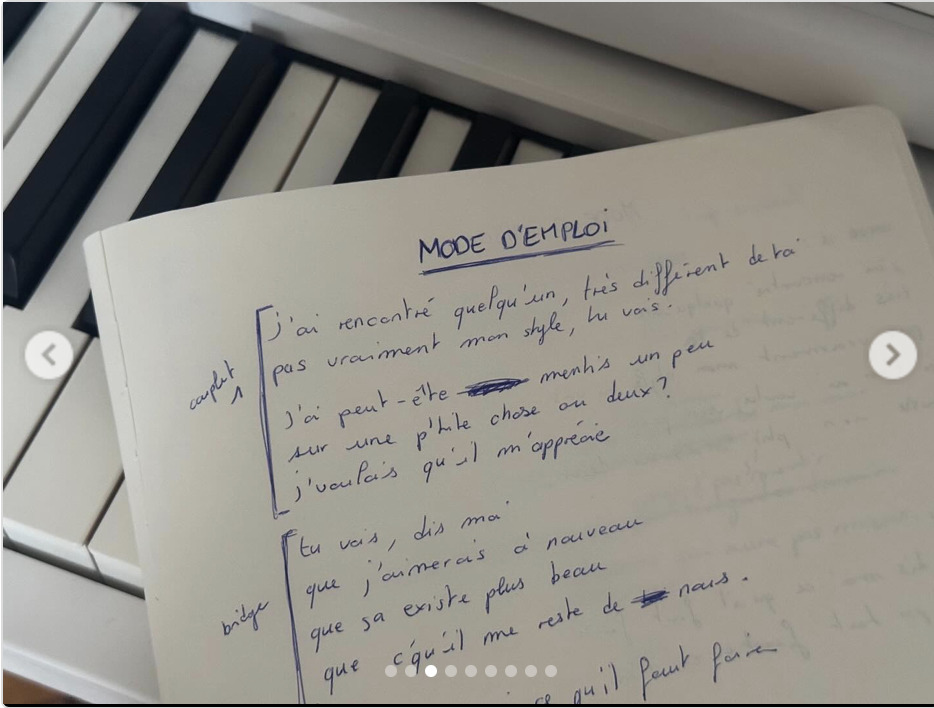 MODE D'EMPLOI
couplet 1
j'ai rencontré quelqu'un, très différent de toi
pas vraiment mon style, tu vois.
J'ai peut-être mentis un peu
sur une p'tite chose ou deux?
j'voulais qu'il m'apprécie
bridge
tu vois, dis moi
que j'aimerais à nouveau
que sa existe plus beau
que c'qu'il me reste de nous.
ce qu'il faut faire